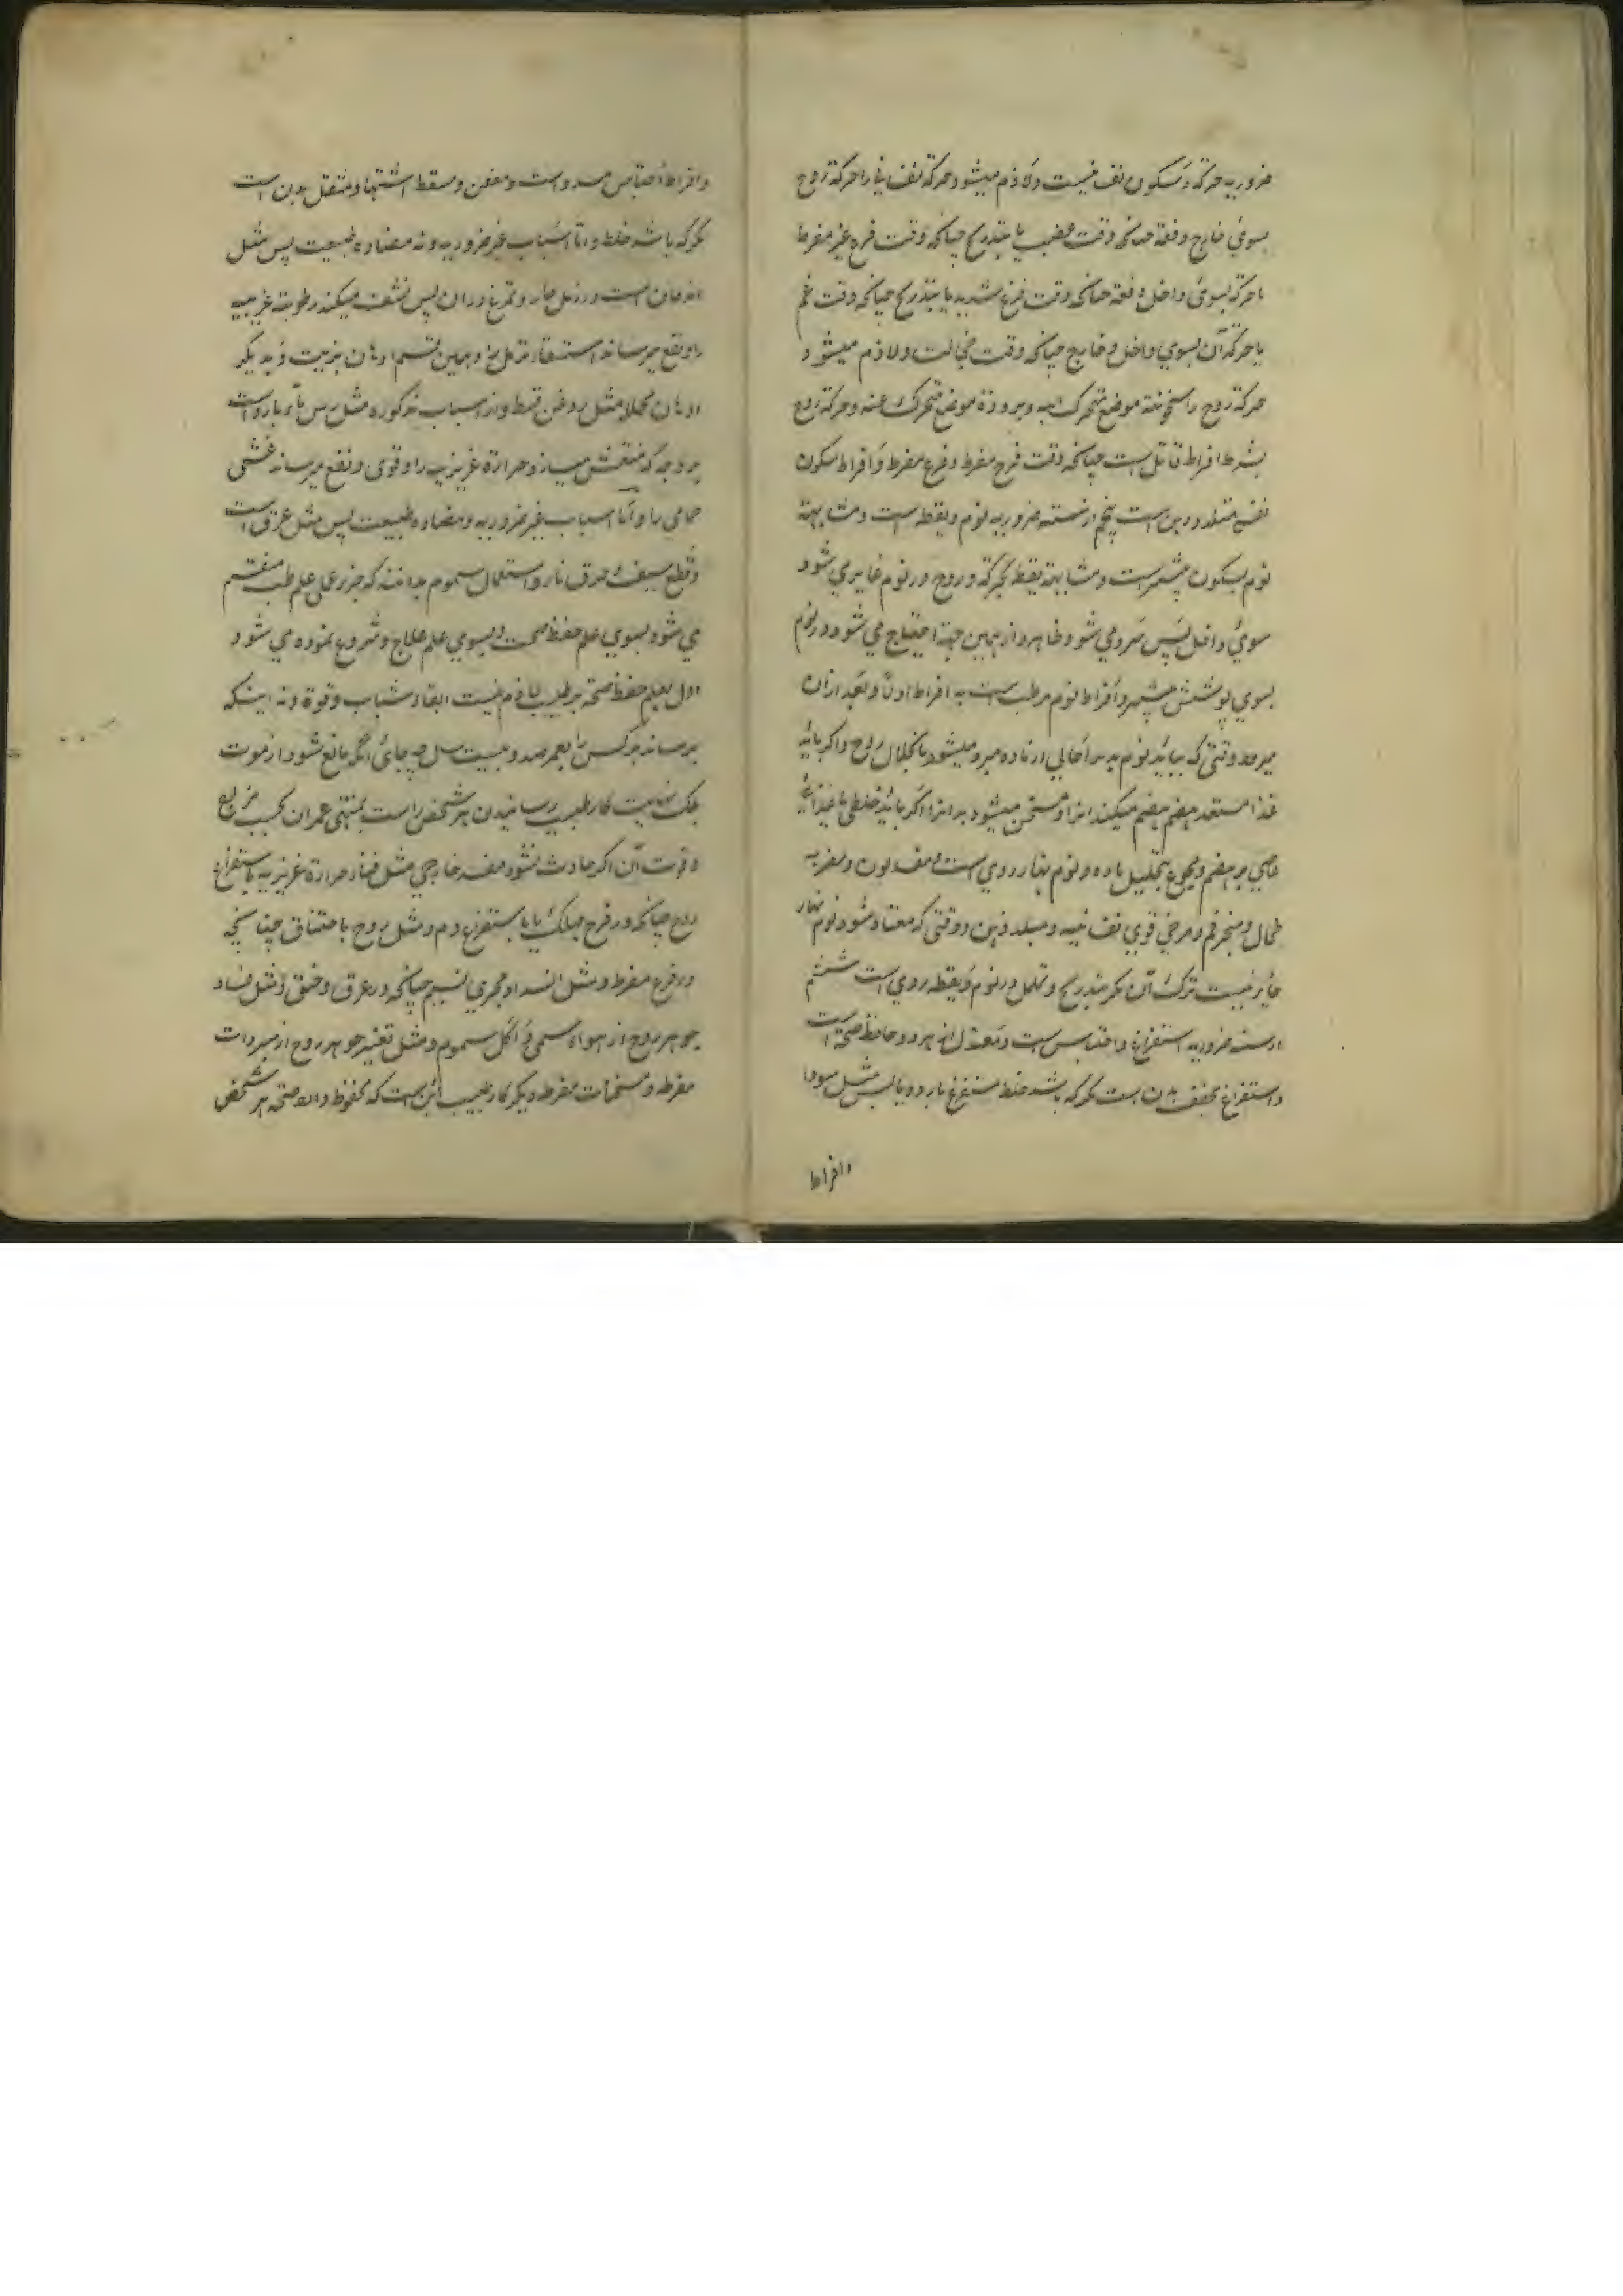 ضروریه حرکة و سکون نفسیست و لازم میشود حرکة نفسانی را حرکة روح
بسوی خارج دفعة چنانکه وقت غضب یا بتدریج چنانکه وقت فرح غیر مفرط
یا حرکة بسوی داخل دفعة چنانکه وقت فزع شدید یا بتدریج چنانکه وقت غم
یا حرکة آن بسوی داخل و خارج چنانکه وقت خجالت و لازم میشود
حرکة روح را سخونة موضع متحرک الیه و برودة موضع متحرک عنه و حرکة روح
بشرط افراط قاتل است چنانکه وقت فرح مفرط و فزع مفرط و افراط سکون
نفس مبلد ذهن است پنجم از سته ضروریه نوم و یقظه است و مشابهة
نوم بسکون بیشتر است و مشابهة یقظه بحرکة و روح در نوم غایر می شود
سوی داخل پس سرد می شود ظاهر و از همین جهة احتیاج می شود در نوم
بسوی پوشش بیشتر و افراط نوم مرطب است به افراط اولا و بعد ازان
میبرد وقتی که بیاید نوم بدن را خالی از ماده سرد میشود بانحلال روح و اگر بیابد
غذا مستعد هضم هضم میکند انرا و مسخن میشود بدن را و اگر بیابد خلطی یا غذائی
عاصی بر هضم و تحلیل ماده و نوم نهار ردی است مفسد لون و مضر به
طحال و مبخر فم و مرخی قوی نفسانیه و مبلد ذهن و وقتی که معتاد شود نوم نهار
جایز نیست ترک آن مگر بتدریج و تململ در نوم و یقظه ردی است ششم
از سته ضروریه استفراغ و احتباس است و معتدل از هر دو حافظ صحة است
و استفراغ مجفف بدن است مگر که باشد خلط مستفرغ بارد و یابس مثل سودا
و افراط
و افراط احتباس مسدد است و معفن و مسقط اشتها و مثقل بدن است
مگر که باشد خلط و اما اسباب غیر ضروریه و نه مضاده طبیعت پس مثل
اندفان است در رمل حار و تمرغ در ان پس نشف میکند رطوبة غریبه
را و نفع میرساند استسقا و ترهل را و همین قسم ادهان بزیت و به دیگر
ادهان محلله مثل روغن قسط و از اسباب مذکوره مثل رش ماء بارد است
بر وجه که منتعش میسازد حرارة غریزیه را و قوی و نفع میرساند غشی
حمامی را و اما اسباب غیر ضروریه و مضاده طبیعت پس مثل غرق است
و قطع سیف و حرق نار و استعمال سموم بدانند که جزر عملی علم طب منقسم
می شود بسوی علم حفظ صحت و بسوی علم علاج و شروع نموده می شود
اول بعلم حفظ صحة بر طبیب لازم نیست ابقاء شباب و قوة و نه اینکه
برساند هر کس را بعمر صد و بیست سال چه جای انکه مانع شود از موت
بلکه نهایت کار طبیب رسانیدن هر شخص راست بمنتهی عمر ان بحسب مزاج
و قوت آن اگر حادث نشود مفسد خارجی مثل فنا حرارة غریزیه باستفراغ
روح چنانکه در فرح مهلک یا باستفراغ دم و مثل روح باختناق چنانچه
در فزع مفرط و مثل انسداد مجری نسیم چنانکه در غرق و خنق و مثل فساد
جوهر روح از هواء سمی و اکل سموم و مثل تغیر جوهر روح از مبردات
مفرطه و مسخنات مفرطه و دیگر کار طبیب این است که محفوظ دارد صحة هر شخص